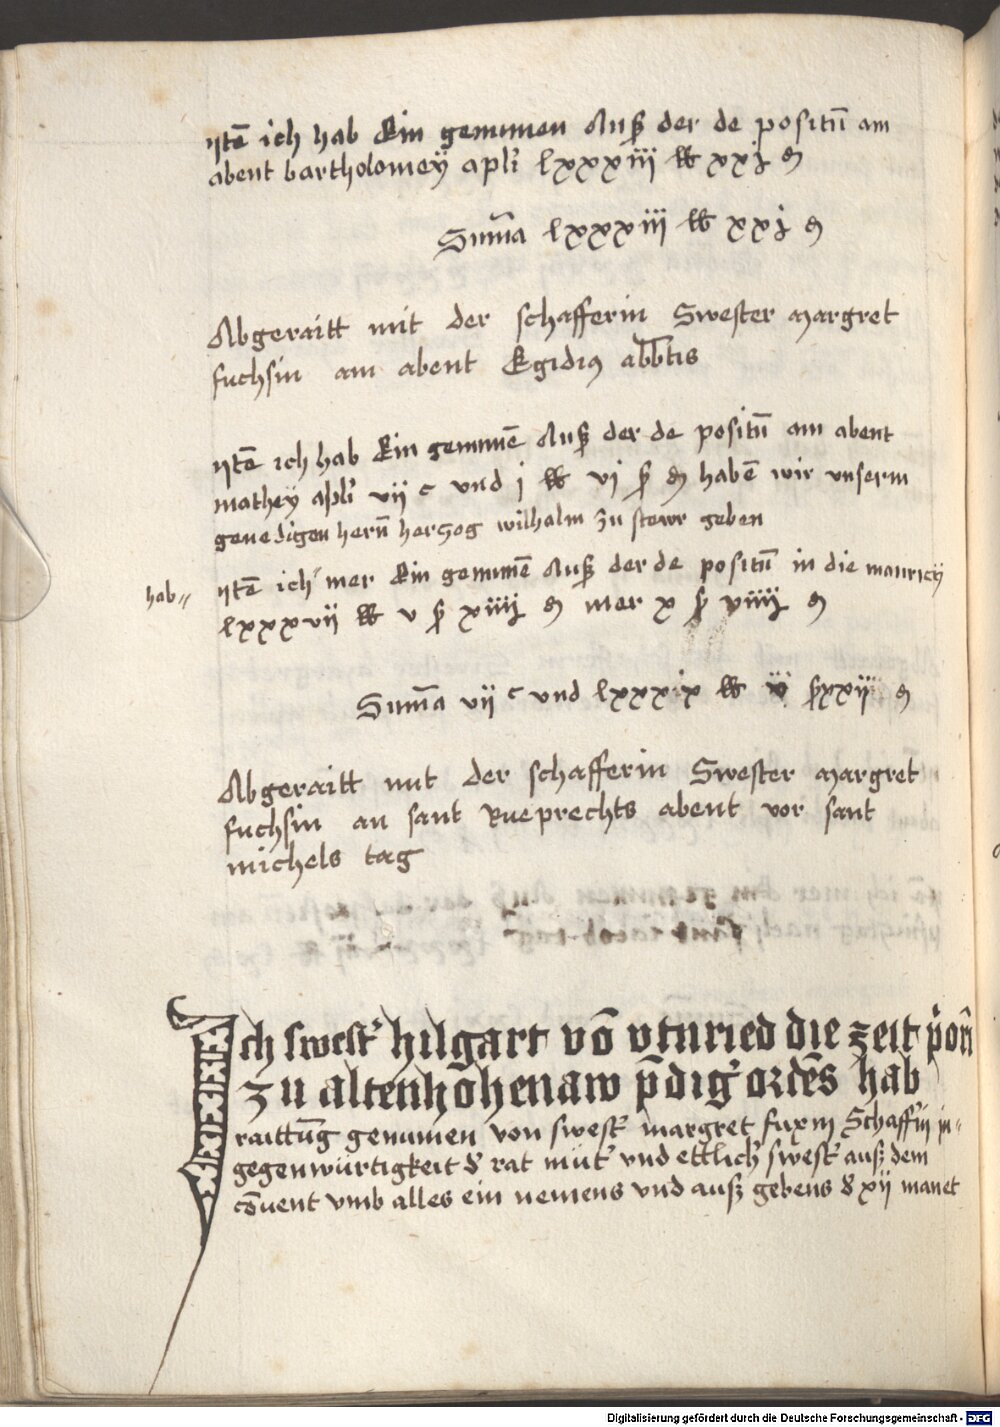 Itē ich hab Ein genumen Auß der de positū am
abent bartholomeÿ apłi lxxxiii ℔ xxj ₰
Suma lxxxiii ℔ xxj ₰
Abgeraitt mit der schafferin Swester Margret
fuchsin am abent Egidius abbtis
Itē ich hab Ein genumē Auß der de positū am abent
matheÿ apłi vij c und j ℔ vj ß ₰ habē wir unserm
genedigen hern̄ herczog wilhalm zu stewr geben
hab Itē ich mer Ein genumē Auß der de positū in die mauricÿ
lxxxvii ℔ v ß xiiij ₰ mer x ß viiij ₰
Suma vij c und lxxxix ℔ ß xxij ₰
Abgeraitt mit der schafferin Swester Margret
fuchsin an sant Rueprechts abent vor sant
michels tag
Ich swest' hilgart vō vtnried die zeit p'orī
zu altenhohenaw p̄dig' ordēs hab
raittūg genumen von swest' margret fuxin Schaff'in in=
gegenwürtigkeit d' rat müt' und ettlich' swest' auß dem
cōvent vmb alles ein nemens vnd auß gebens d' xij manet
Digitalisierung gefördert durch die Deutsche Forschungsgemeinschaft - DFG